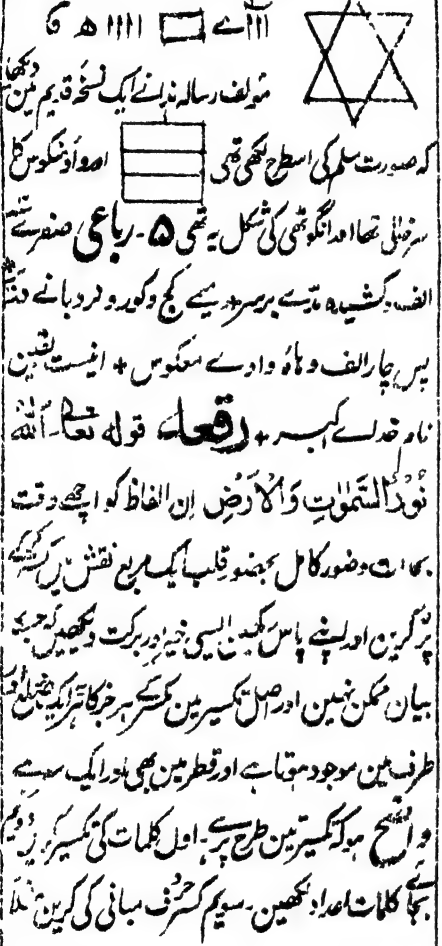 ااآے ااااھ
مولف رسالہ ہذا نے ایک نسخۂ قدیم مین دیکھا
کہ صورت سلم کی اسطرح لکھی تھی اور واؤ منکوس کا
سر خالی تھا اور انگوٹھی کی شکل یہ تھی ۵۔ رباعی صفرے
الف کشیدہ مدے برسر + میمے کج و کور و نردبانے
پس چار الف و ہاؤ واوے معکوس + اینست یقین
نام خداے اکبر + رقعہ قولہ تعالیٰ اللہ
نُوْرُ السَّمٰوٰتِ وَالْاَرْضِ اِن الفاظ کو اچھے وقت
بحضور قلب ایک مربع نقش مین
پُر کرین اور اپنے پاس رکھین ایسی خیر اور برکت دیکھین کہ
بیان ممکن نہین اور اصل تکسیر مین کسر کے ہر جزکا
طرف مین موجود ہوتا ہے اور قطر مین بھی اور ایک سے
واضح ہو کہ تکسیر تین طرح پر ہے۔ اول کلمات کی تکسیر کرین دویم
بجاے کلمات اعداد لکھین۔ سویم کسر حروف مبانی کی کرین مثلاً